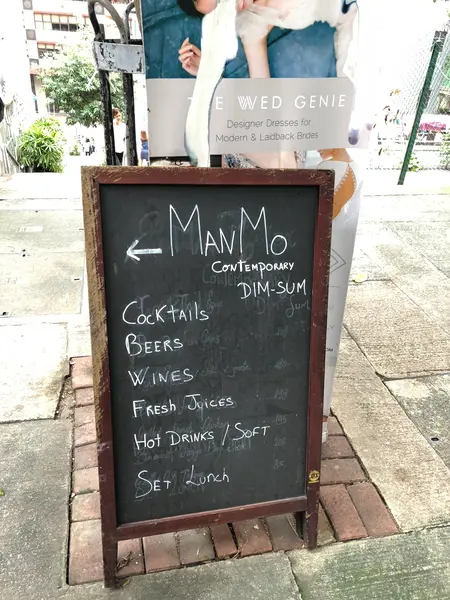 THE WED GENIE
Designer Dresses for
Modern & Laidback Brides
← MANMO
CONTEMPORARY
DIM-SUM
COCKTAILS
BEERS
WINES
FRESH JUICES
HOT DRINKS / SOFT
SET LUNCH